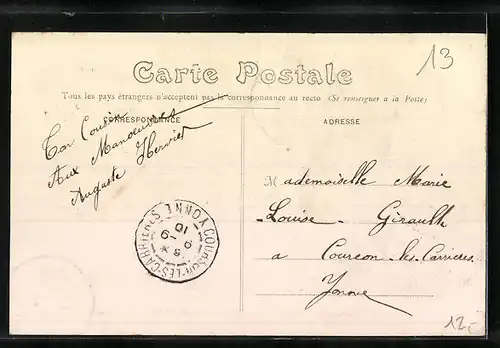 13
Carte Postale
Tous les pays étrangers n'acceptent pas la correspondance au recto (Se renseigner à la Poste)
CORRESPONDANCE
ADRESSE
Ton Cousin
Aux Manoeuvres
Auguste Hervier
Mademoiselle Marie
Louise Girault
a Courson les Carrières
Yonne
COURSON-LES-CARRIÈRES YONNE
9 -9
10
12.-